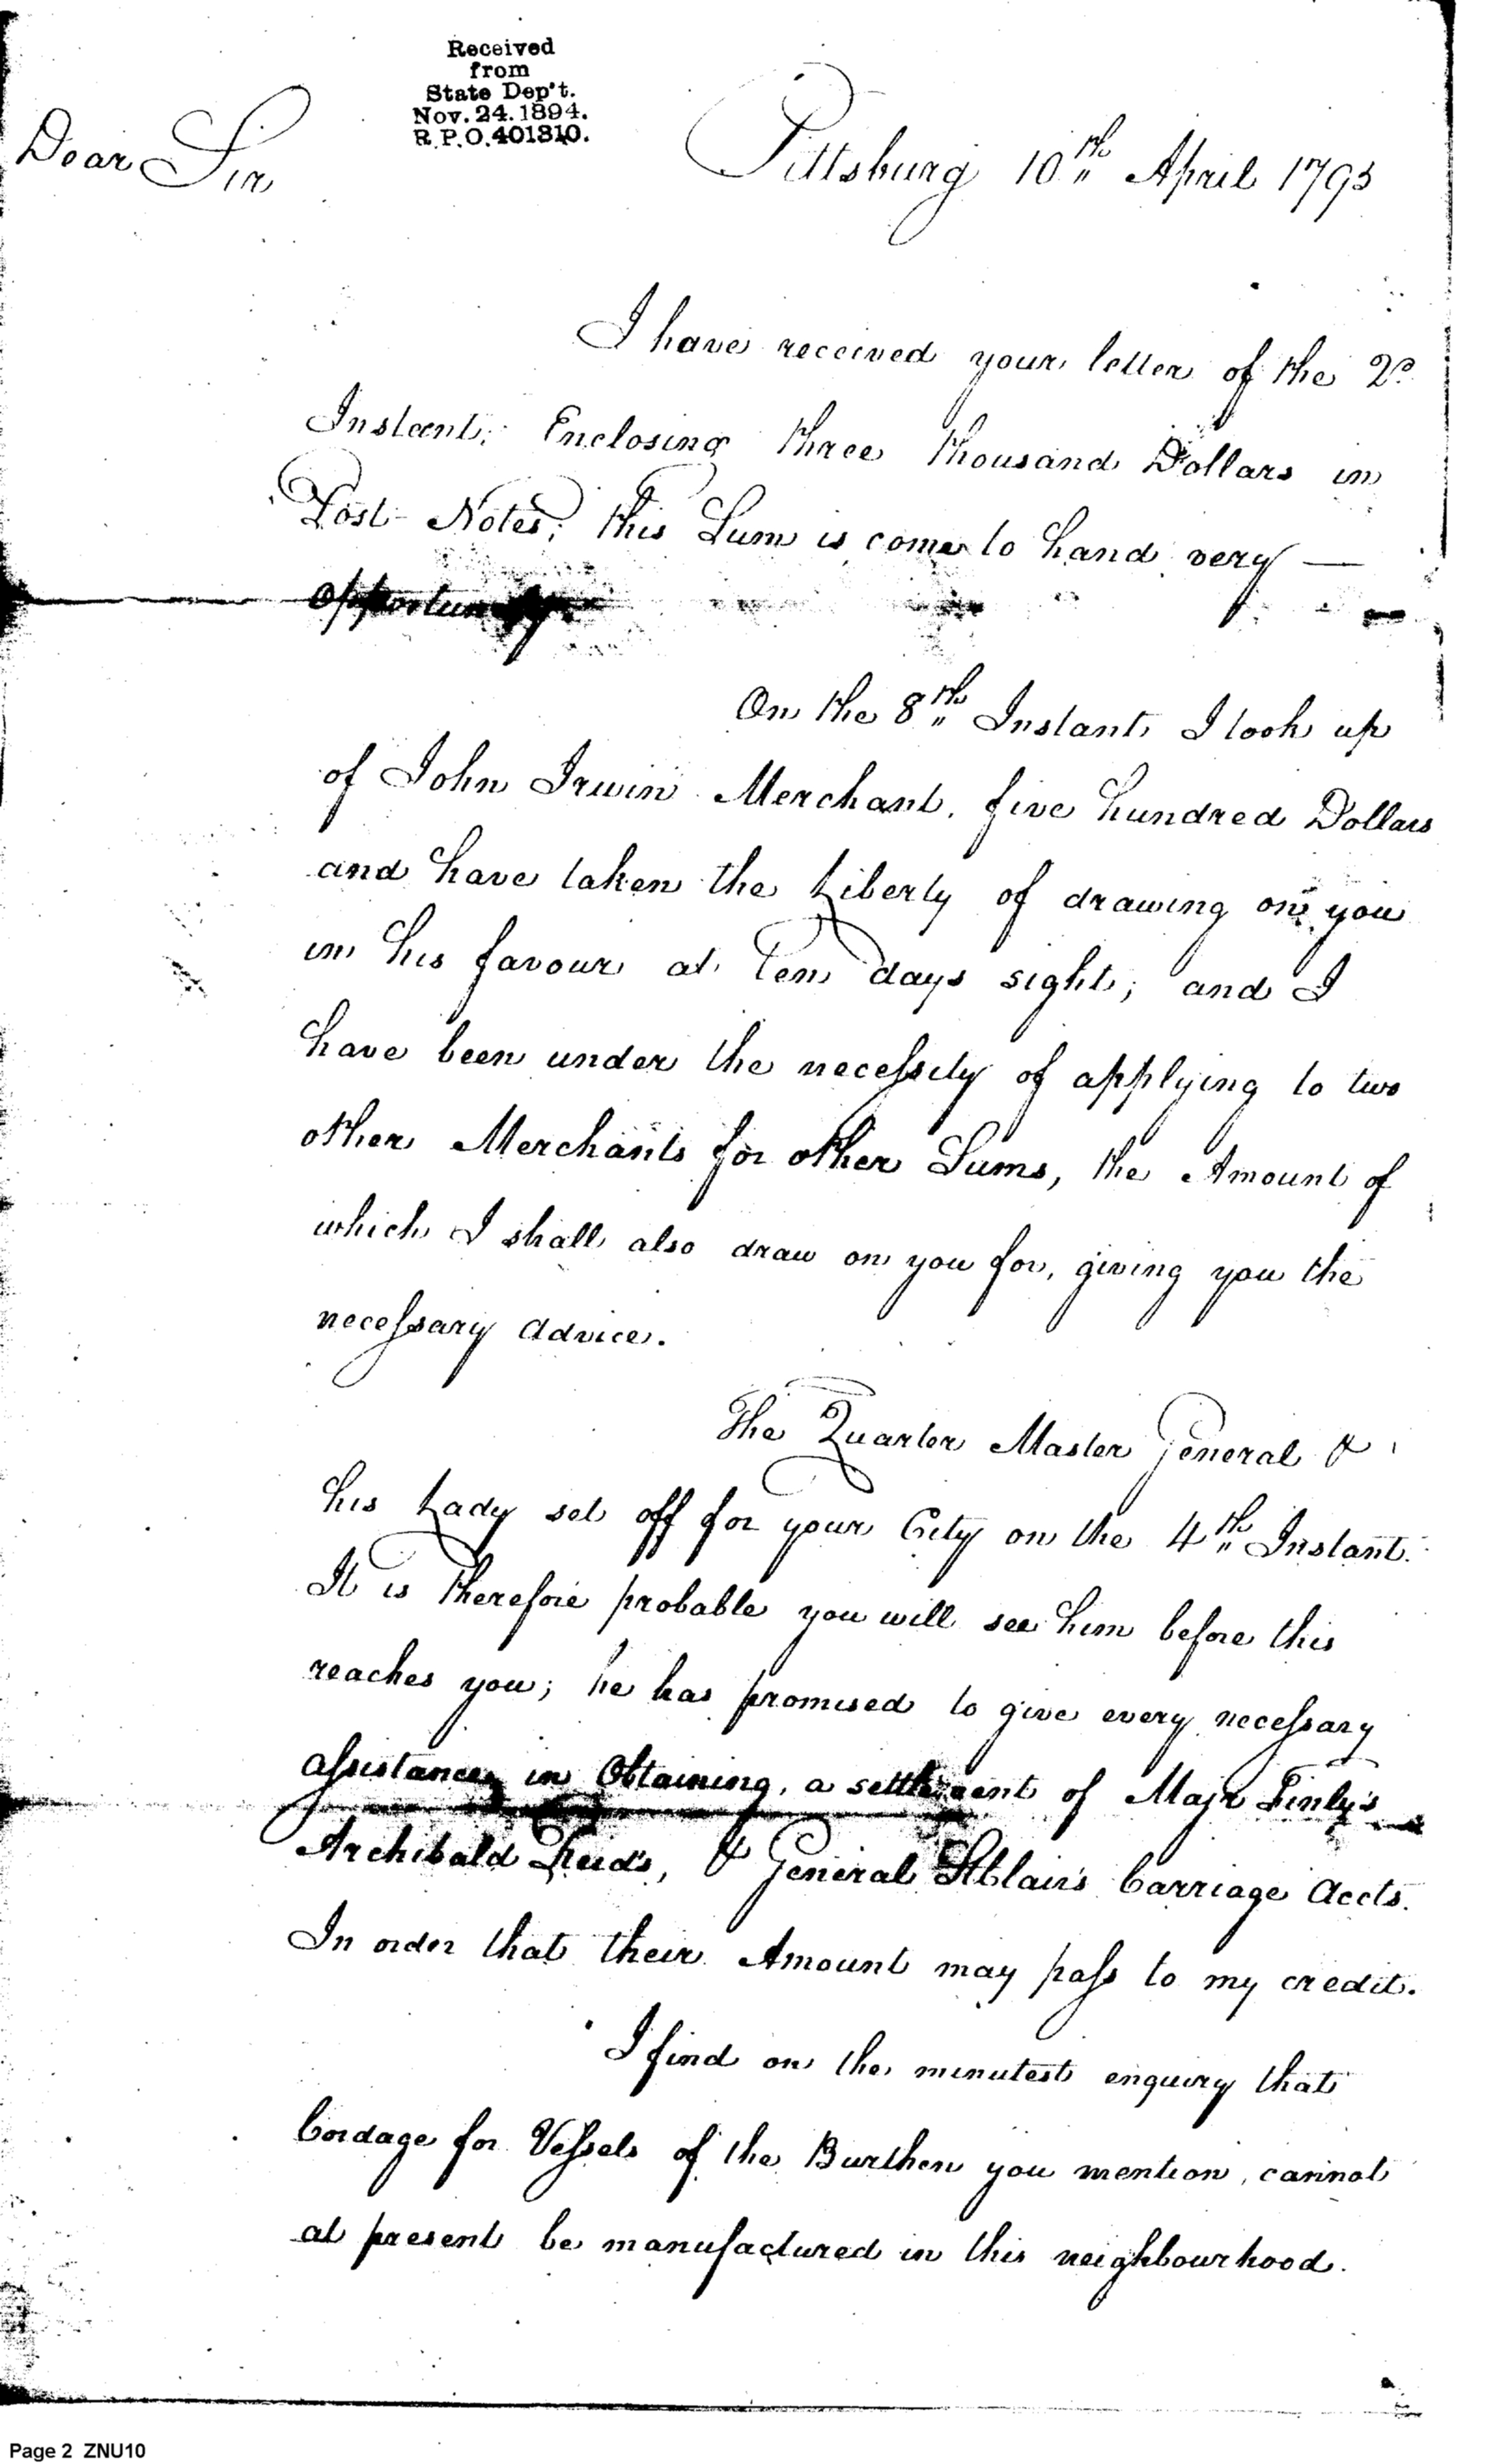 Received
from
State Dep't.
Nov. 24. 1894.
R.P.O. 401310.
Dear Sir
Pittsburg 10th April 1793
I have received your letter of the 2d
Instant; Enclosing three thousand Dollars in
Post-Notes; this Sum is come to hand very —
Opportunely.
On the 8th Instant I took up
of John Irwin Merchant, five hundred Dollars
and have taken the Liberty of drawing on you
in his favour at Ten days sight; and I
have been under the necessity of applying to two
other Merchants for other Sums, the Amount of
which I shall also draw on you for, giving you the
necessary advice.
The Quarter Master General &
his Lady set off for your City on the 4th Instant.
It is therefore probable you will see him before this
reaches you; he has promised to give every necessary
assistance in Obtaining, a settlement of Majr Finly's
Archibald Reids, & General StClairs Carriage Accts.
In order that their Amount may pass to my credit.
I find on the minutest enquiry that
Cordage for Vessels of the Burthen you mention, cannot
at present be manufactured in this neighbourhood.
Page 2 ZNU10